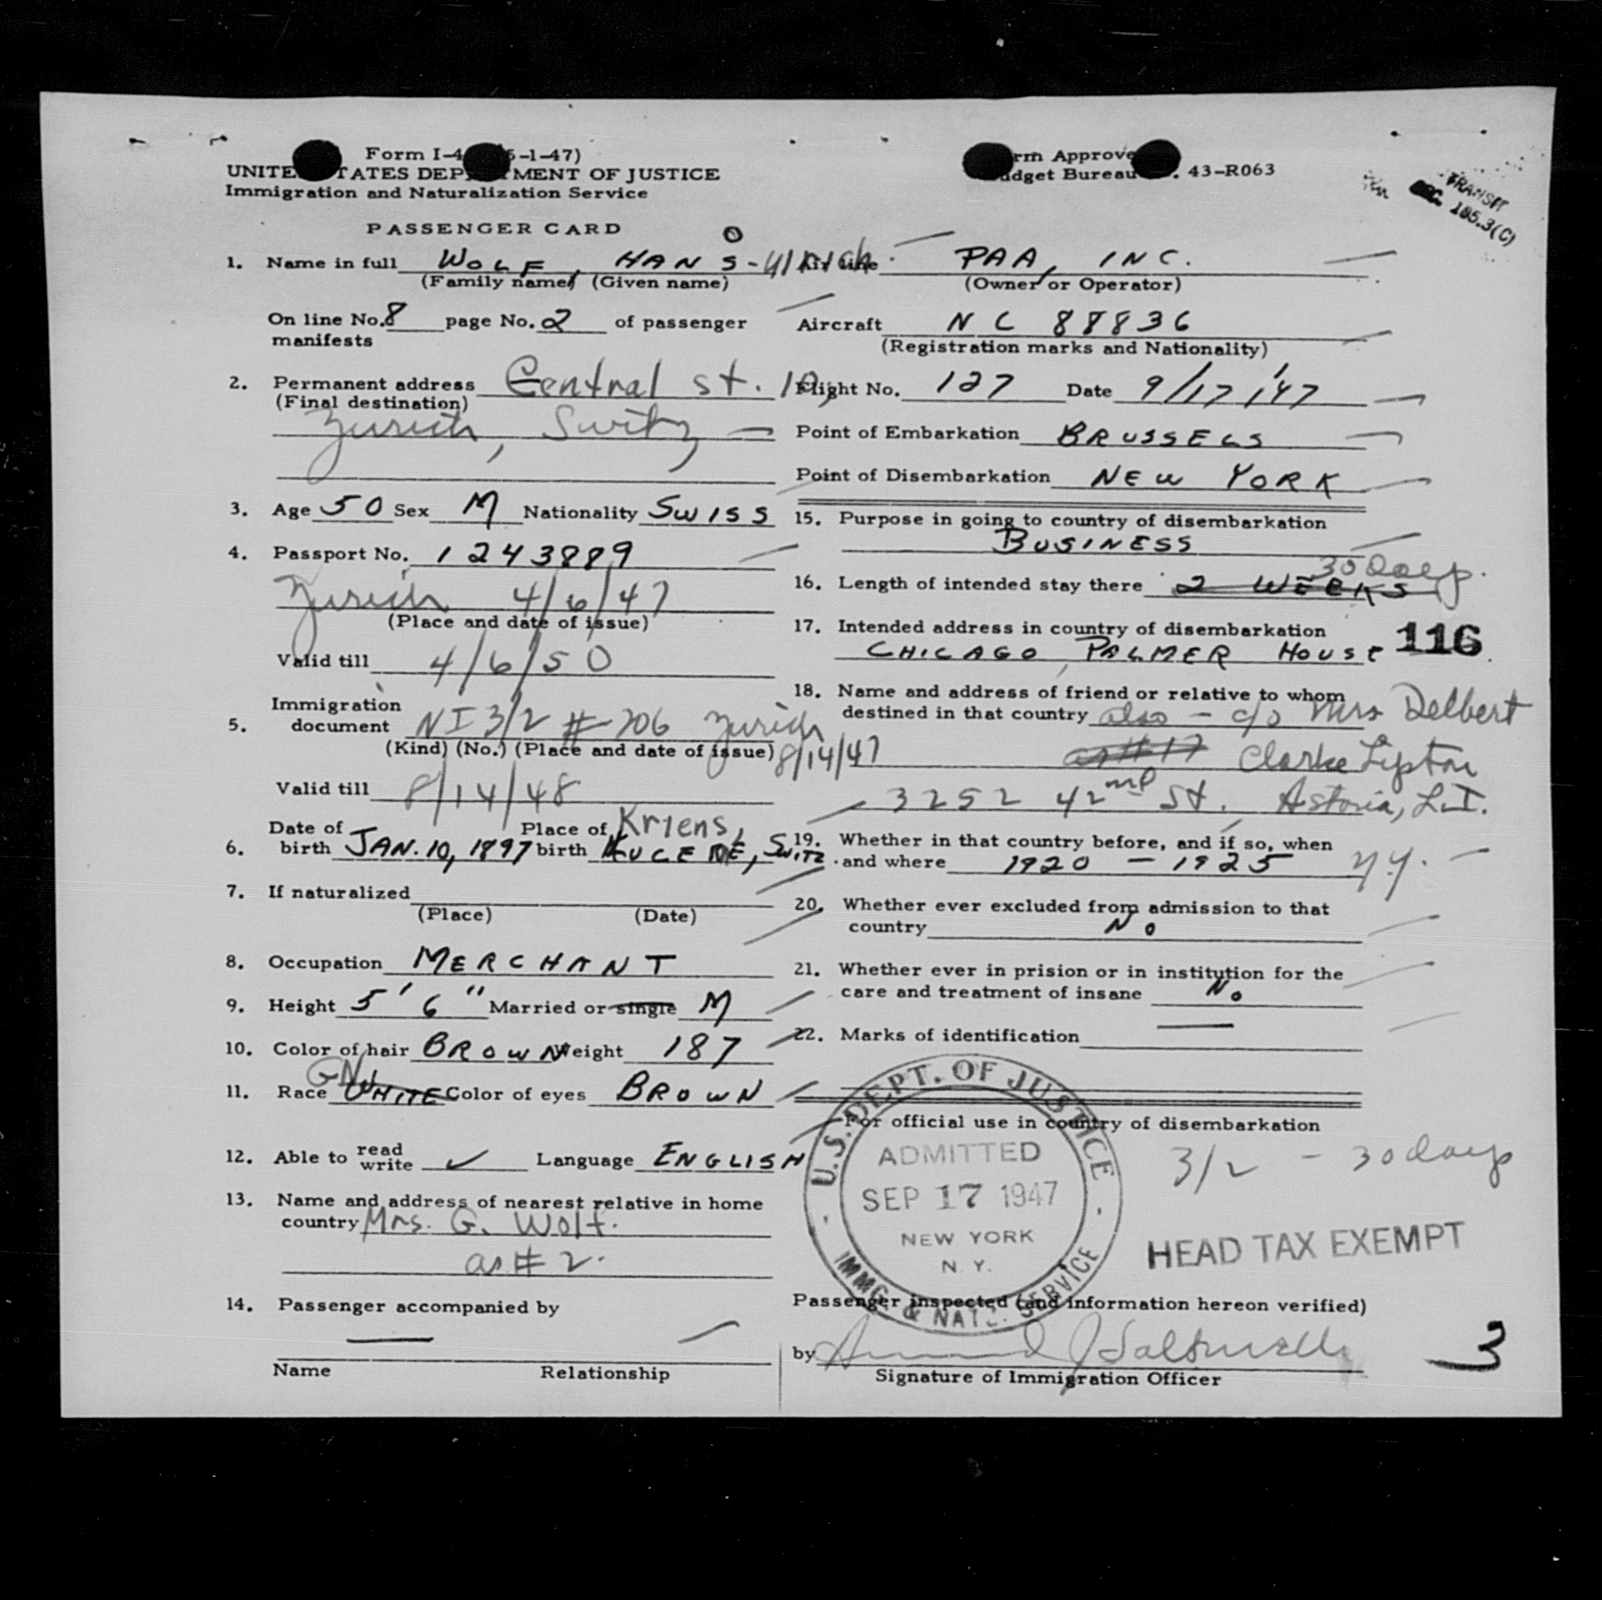 Form I-4 5-1-47)
UNITE TATES DEP MENT OF JUSTICE
Immigration and Naturalization Service
PASSENGER CARD
1. Name in full WOLF, HANS-Ulrich
(Family name) (Given name)
On line No. 8 page No. 2 of passenger
manifests
2. Permanent address Central St. 10,
(Final destination)
Zurich, Switz
3. Age 50 Sex M Nationality SWISS
4. Passport No. 1243889
Zurich 4/6/47
(Place and date of issue)
Valid till 4/6/50
Immigration
5. document NI 3/2 # 706 Zurich
(Kind) (No.) (Place and date of issue) 8/14/47
Valid till 8/14/48
Date of Place of Kriens,
6. birth JAN. 10, 1897 birth LUCERNE, SWITZ.
7. If naturalized
(Place) (Date)
8. Occupation MERCHANT
9. Height 5' 6" Married or single M
10. Color of hair BROWN Weight 187
11. Race WHITE Color of eyes BROWN
12. Able to read write ✓ Language ENGLISH
13. Name and address of nearest relative in home
country Mrs. G. Wolf.
as # 2.
14. Passenger accompanied by
—
Name Relationship
rm Approve
udget Bureau . 43-R063
TRANSIT
SEC. 185.3(C)
Air line PAA, INC.
(Owner or Operator)
Aircraft NC 88836
(Registration marks and Nationality)
Flight No. 127 Date 9/17/47
Point of Embarkation BRUSSELS
Point of Disembarkation NEW YORK
15. Purpose in going to country of disembarkation
BUSINESS
30 days.
16. Length of intended stay there 2 WEEKS
17. Intended address in country of disembarkation
CHICAGO, PALMER HOUSE 116
18. Name and address of friend or relative to whom
destined in that country also - c/o Mrs Delbert
as # 17 Clarke Lipton
3252 42nd St. Astoria, L.I.
19. Whether in that country before, and if so, when
and where 1920 - 1925 N.Y.
20. Whether ever excluded from admission to that
country No
21. Whether ever in prision or in institution for the
care and treatment of insane No
22. Marks of identification —
For official use in country of disembarkation
U.S. DEPT. OF JUSTICE
ADMITTED
SEP 17 1947
NEW YORK
N. Y.
IMMG. & NATZ. SERVICE
3/2 - 30 days
HEAD TAX EXEMPT
Passenger inspected (and information hereon verified)
by
Signature of Immigration Officer
3